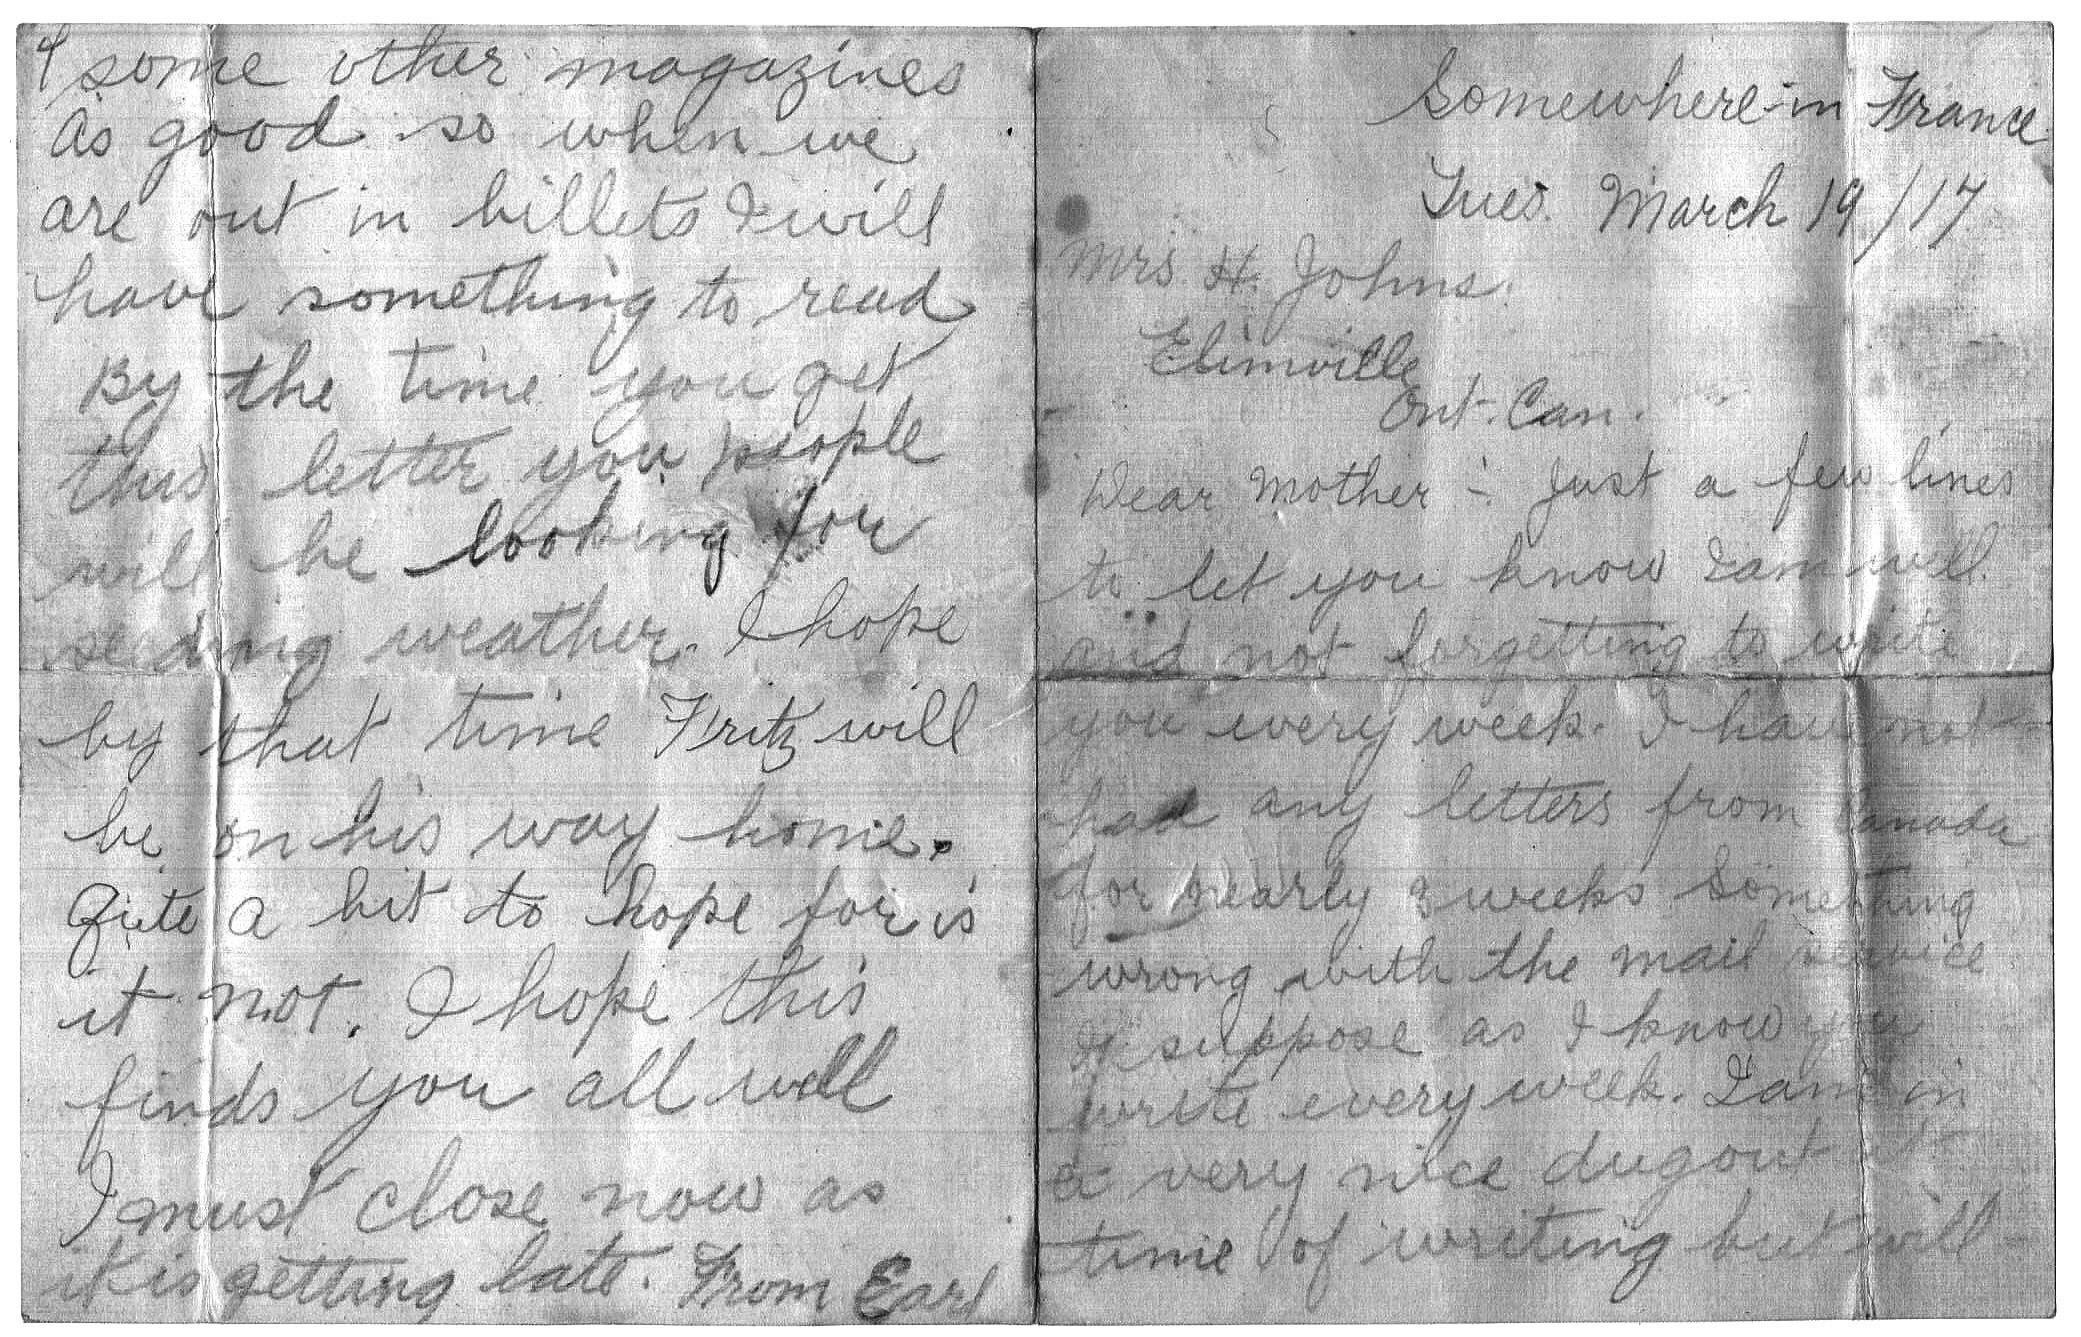 Somewhere in France
Tues. March 19/17
Mrs. H. Johns.
Elimville
Ont. Can.
Dear Mother - Just a few lines
to let you know I am well
and not forgetting to write
you every week. I have not
had any letters from Canada
for nearly 3 weeks Something
wrong with the mail service
I suppose as I know you
write every week. I am in
a very nice dugout at
time of writing but will
& some other magazines
as good so when we
are out in billets I will
have something to read
By the time you get
this letter you people
will be looking for
seeding weather. I hope
by that time Fritz will
be on his way home.
Quite a bit to hope for is
it not. I hope this
finds you all well
I must close now as
it is getting late. From Earl